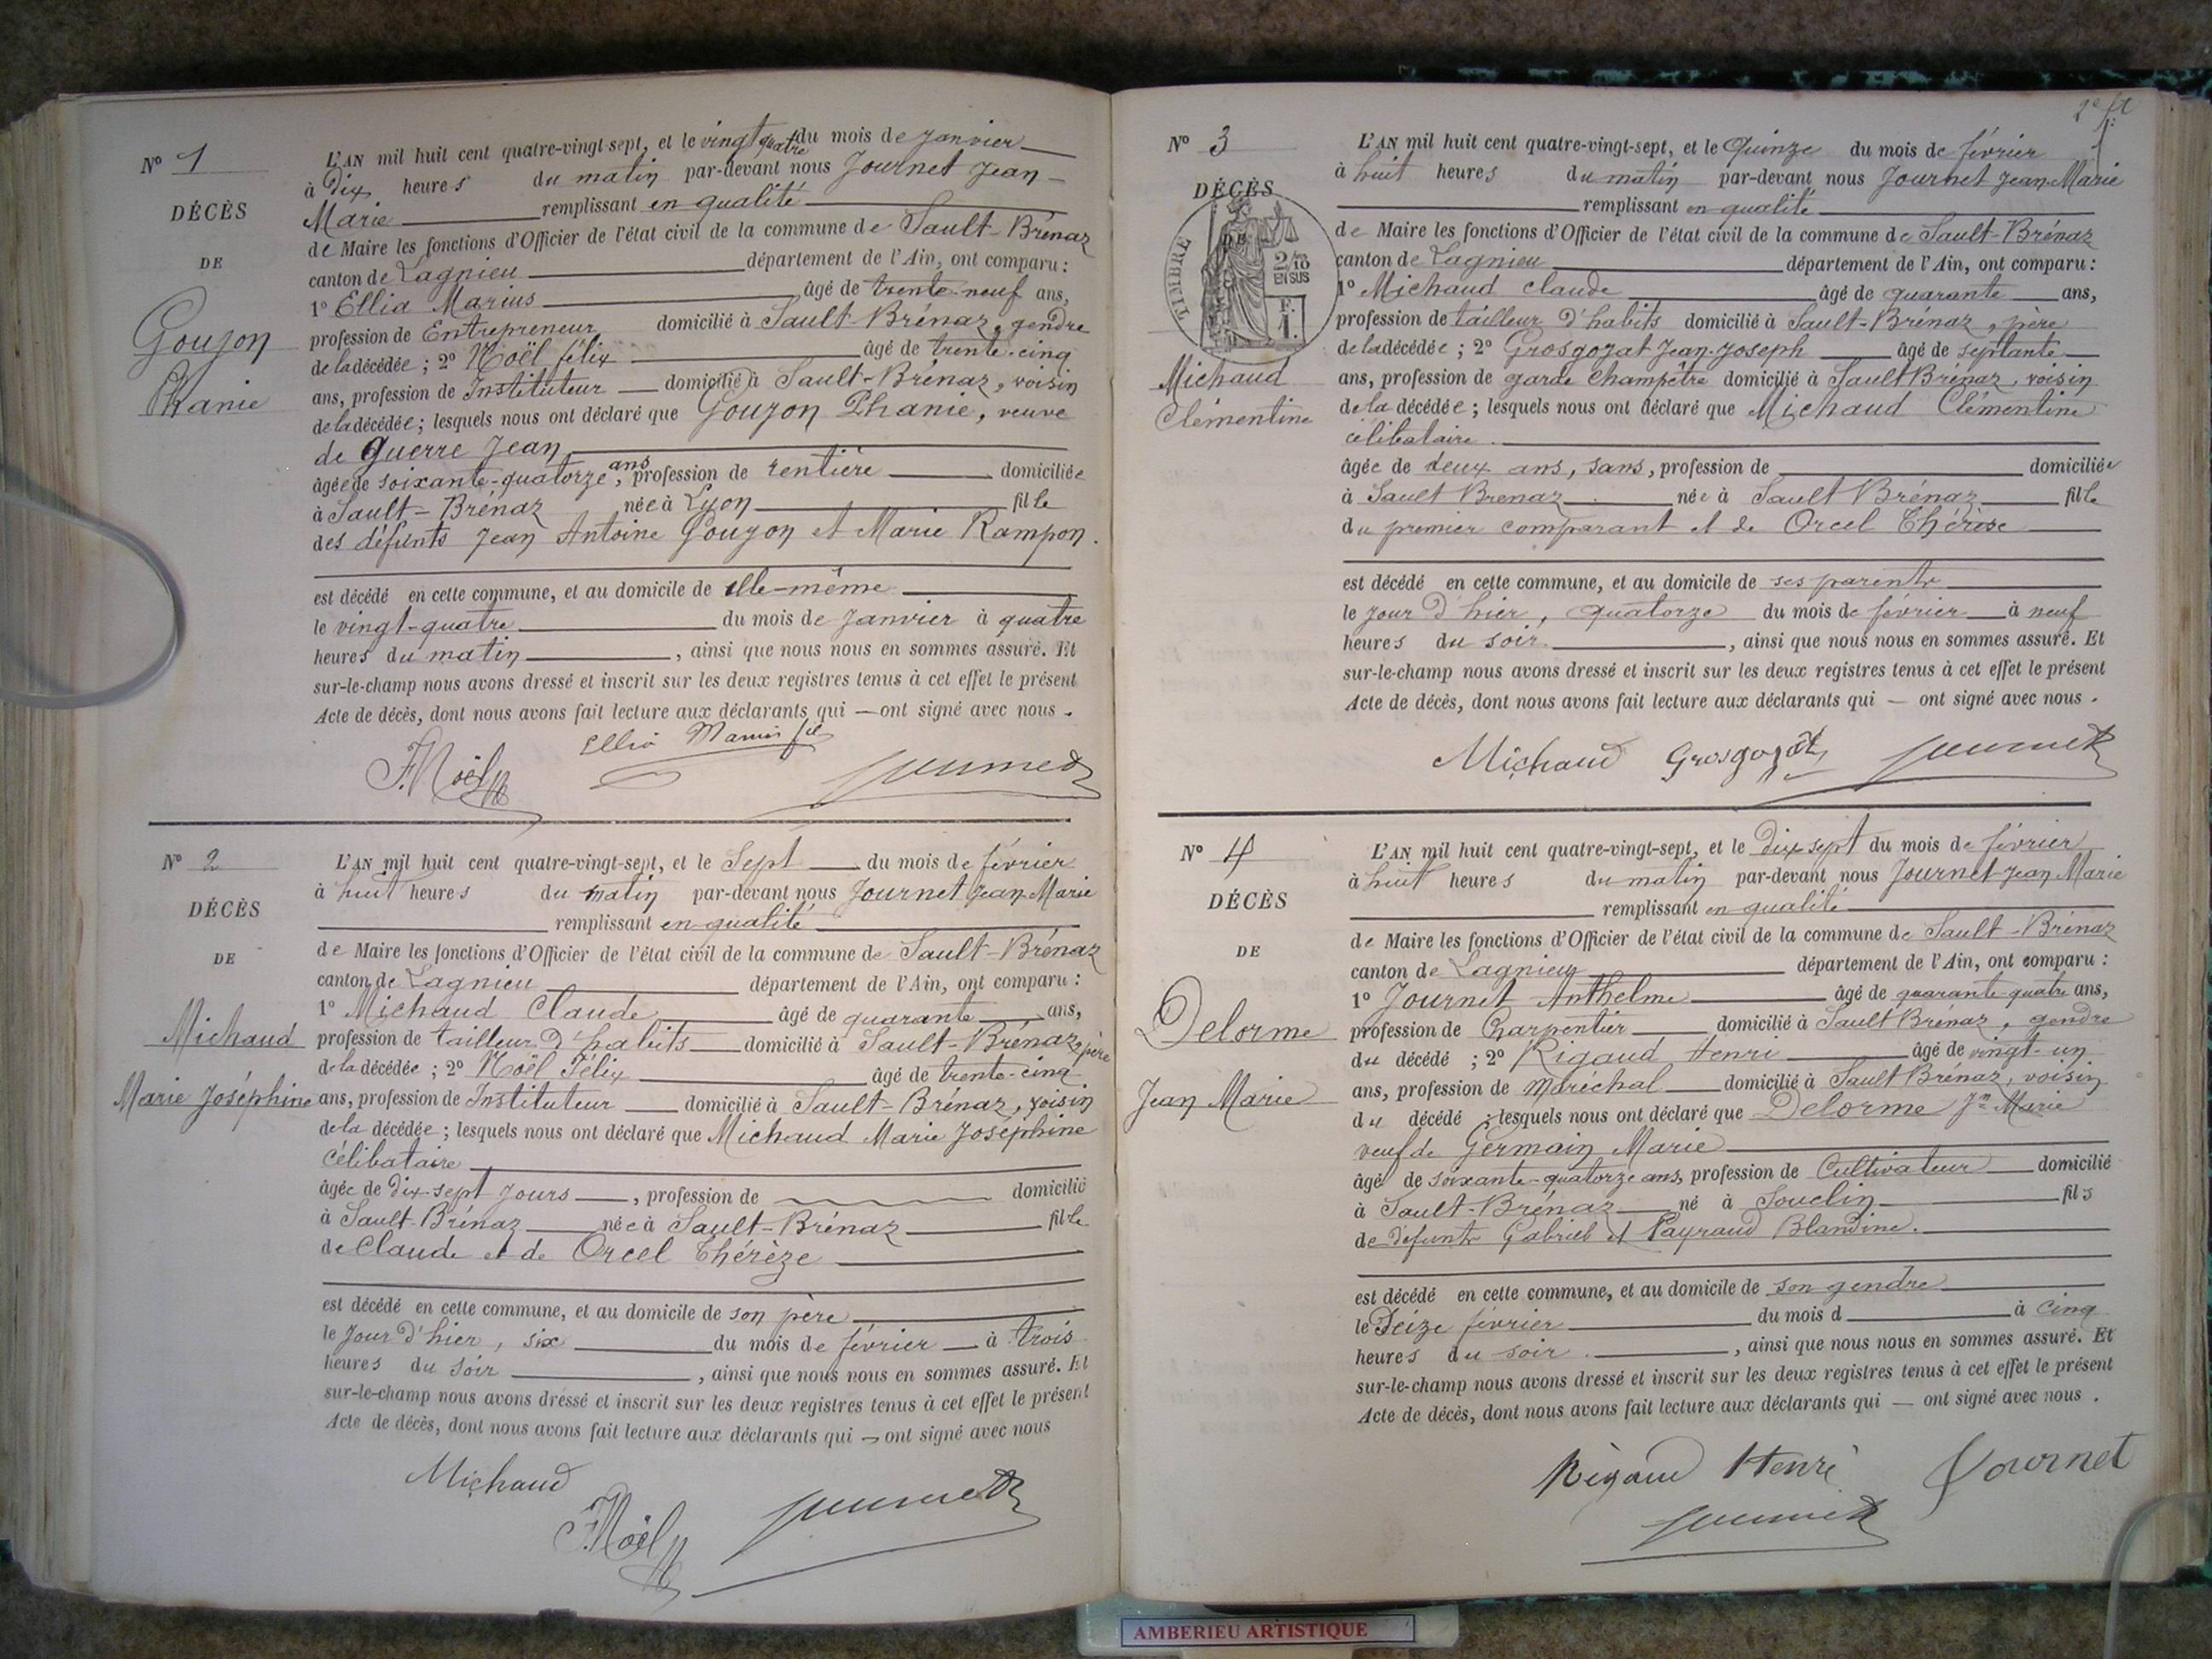 N° 1
DÉCÈS
DE
Goujon
Phanie
L'AN mil huit cent quatre-vingt-sept, et le vingt quatre du mois de Janvier
à Dix heures du matin par-devant nous Journet Jean-
Marie remplissant en qualité
de Maire les fonctions d'Officier de l'état civil de la commune de Sault-Brénaz
canton de Lagnieu département de l'Ain, ont comparu :
1° Ellia Marius âgé de trente-neuf ans,
profession de Entrepreneur domicilié à Sault-Brénaz, gendre
de la décédée ; 2° Noël félix âgé de trente-cinq
ans, profession de Instituteur domicilié à Sault-Brénaz, voisin
de la décédée ; lesquels nous ont déclaré que Goujon Phanie, veuve
de Guerre Jean
âgée de soixante-quatorze ans, profession de rentière domiciliée
à Sault-Brénaz née à Lyon fille
des défunts Jean Antoine Goujon et Marie Rampon.
est décédé en cette commune, et au domicile de elle-même
le vingt-quatre du mois de Janvier à quatre
heures du matin, ainsi que nous nous en sommes assuré. Et
sur-le-champ nous avons dressé et inscrit sur les deux registres tenus à cet effet le présent
Acte de décès, dont nous avons fait lecture aux déclarants qui — ont signé avec nous.
F. Noël Ellia Marius fils Journet
N° 2
DÉCÈS
DE
Michaud
Marie Joséphine
L'AN mil huit cent quatre-vingt-sept, et le Sept du mois de février
à huit heures du matin par-devant nous Journet Jean Marie
remplissant en qualité
de Maire les fonctions d'Officier de l'état civil de la commune de Sault-Brénaz
canton de Lagnieu département de l'Ain, ont comparu :
1° Michaud Claude âgé de quarante ans,
profession de tailleur d'habits domicilié à Sault-Brénaz, père
de la décédée ; 2° Noël Félix âgé de trente-cinq
ans, profession de Instituteur domicilié à Sault-Brénaz, voisin
de la décédée ; lesquels nous ont déclaré que Michaud Marie Joséphine
Célibataire
âgée de Dix-sept Jours, profession de domicilié
à Sault-Brénaz née à Sault-Brénaz fille
de Claude et de Orcel Thérèze
est décédé en cette commune, et au domicile de son père
le jour d'hier, six du mois de février à trois
heures du soir, ainsi que nous nous en sommes assuré. Et
sur-le-champ nous avons dressé et inscrit sur les deux registres tenus à cet effet le présent
Acte de décès, dont nous avons fait lecture aux déclarants qui — ont signé avec nous
Michaud
F. Noël Journet
N° 3
DÉCÈS
DE
TIMBRE
2/10
EN SUS
F.
1.
Michaud
Clémentine
L'AN mil huit cent quatre-vingt-sept, et le Quinze du mois de février
à huit heures du matin par-devant nous Journet Jean-Marie
remplissant en qualité
de Maire les fonctions d'Officier de l'état civil de la commune de Sault-Brénaz
canton de Lagnieu département de l'Ain, ont comparu :
1° Michaud Claude âgé de quarante ans,
profession de tailleur d'habits domicilié à Sault-Brénaz, père
de la décédée ; 2° Grosgojat Jean-Joseph âgé de septante
ans, profession de garde Champêtre domicilié à Sault Brénaz, voisin
de la décédée ; lesquels nous ont déclaré que Michaud Clémentine
célibataire.
âgée de deux ans, sans, profession de domiciliée
à Sault Brenaz née à Sault Brénaz fille
du premier comparant et de Orcel Thérèse
est décédé en cette commune, et au domicile de ses parents
le jour d'hier, quatorze du mois de février à neuf
heures du soir, ainsi que nous nous en sommes assuré. Et
sur-le-champ nous avons dressé et inscrit sur les deux registres tenus à cet effet le présent
Acte de décès, dont nous avons fait lecture aux déclarants qui — ont signé avec nous.
Michaud Grosgojat Journet
N° 4
DÉCÈS
DE
Delorme
Jean Marie
L'AN mil huit cent quatre-vingt-sept, et le Dix sept du mois de février
à huit heures du matin par-devant nous Journet Jean Marie
remplissant en qualité
de Maire les fonctions d'Officier de l'état civil de la commune de Sault-Brénaz
canton de Lagnieu département de l'Ain, ont comparu :
1° Journet Anthelme âgé de quarante quatre ans,
profession de Charpentier domicilié à Sault Brénaz, gendre
du décédé ; 2° Rigaud Henri âgé de vingt-un
ans, profession de Maréchal domicilié à Sault Brénaz, voisin
du décédé ; lesquels nous ont déclaré que Delorme Jn Marie
veuf de Germain Marie
âgé de soixante-quatorze ans, profession de Cultivateur domicilié
à Sault-Brénaz né à Souclin fils
de défunts Gabriel et Payraud Blandine.
est décédé en cette commune, et au domicile de son gendre
le Seize février du mois d à cinq
heures du soir, ainsi que nous nous en sommes assuré. Et
sur-le-champ nous avons dressé et inscrit sur les deux registres tenus à cet effet le présent
Acte de décès, dont nous avons fait lecture aux déclarants qui — ont signé avec nous.
Rigaud Henri Journet
Journet
AMBERIEU ARTISTIQUE